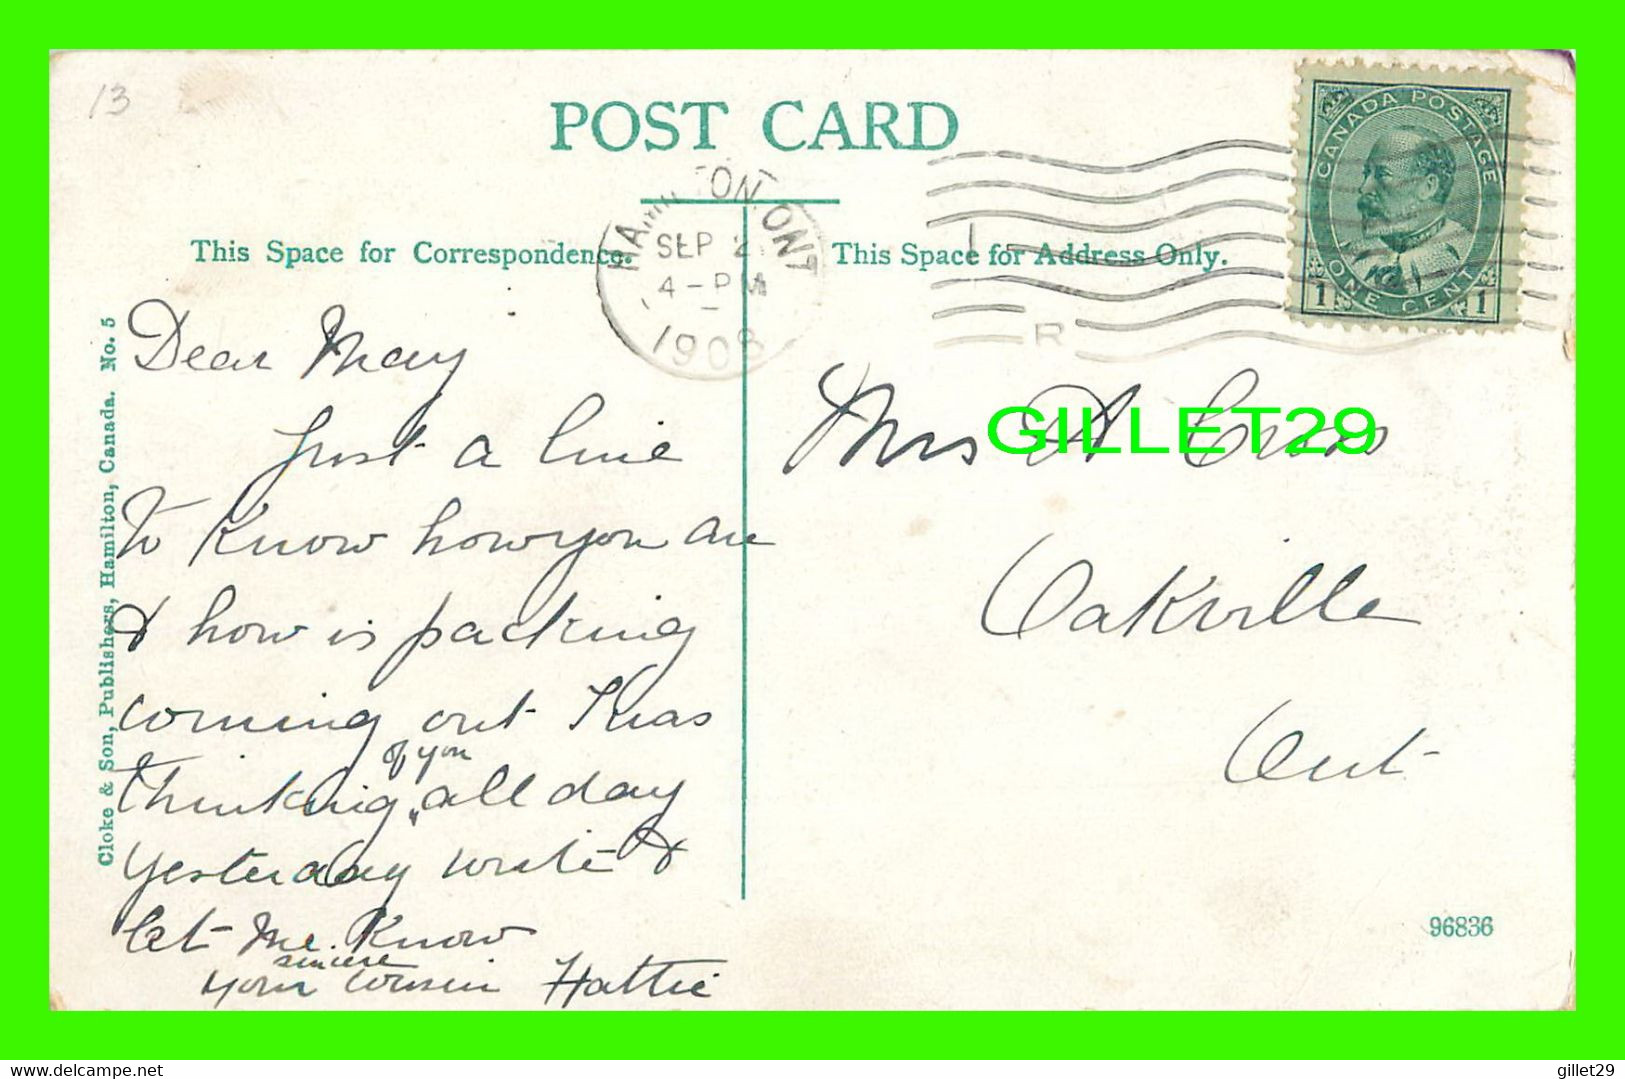 13
POST CARD
HAMILTON. ONT
SEP 2
4-PM
1908
R
CANADA POSTAGE
ONE CENT
1 1
This Space for Correspondence.
This Space for Address Only.
Cloke & Son, Publishers, Hamilton, Canada. No. 5
Dear May
Just a line
to know how you are
& how is packing
coming out I was
of you
thinking all day
yesterday write &
let me know
sincere
your cousin Hattie
Mrs A Cross
Oakville
Ont
96836
GILLET29
delcampe.net
gillet29